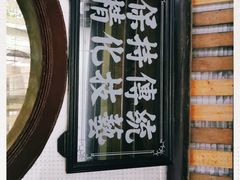 保持傳統
精化技藝